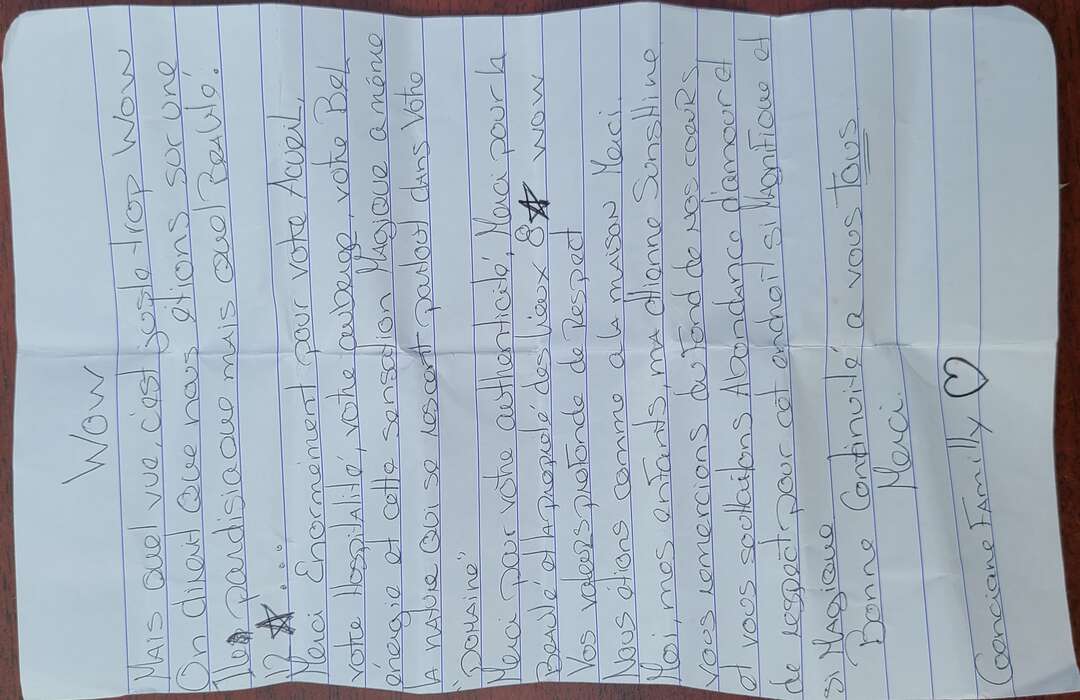 WOW
MAIS QUEL VUE, C'EST JUSTE trop WOW
On dirait Que nous étions sur une
île paradisiaque MAIS QUEL BEAUté.
12 ☆ ...
Merci Énormément pour votre Accueil,
votre Hospitalité, votre auberge, votre Bel
énergie et cette sensation MAgique a même
la nature QUI se rescent partout dans Votre
"Domaine"
Merci pour votre authenticité, Merci pour la
BEAUté et la propreté des lieux 8☆ WOW
Vos valeurs profonde de Respect
Nous étions comme a la maison Merci.
Moi, mes enfants, ma chienne Sunshine
vous remercions du fond de nos coeurs
et vous souhaitons Abondance d'amour et
de respect pour cet endroit si MAgnifique et
si MAgique
Bonne Continuité a vous Tous
Merci.
FAmilly ♡